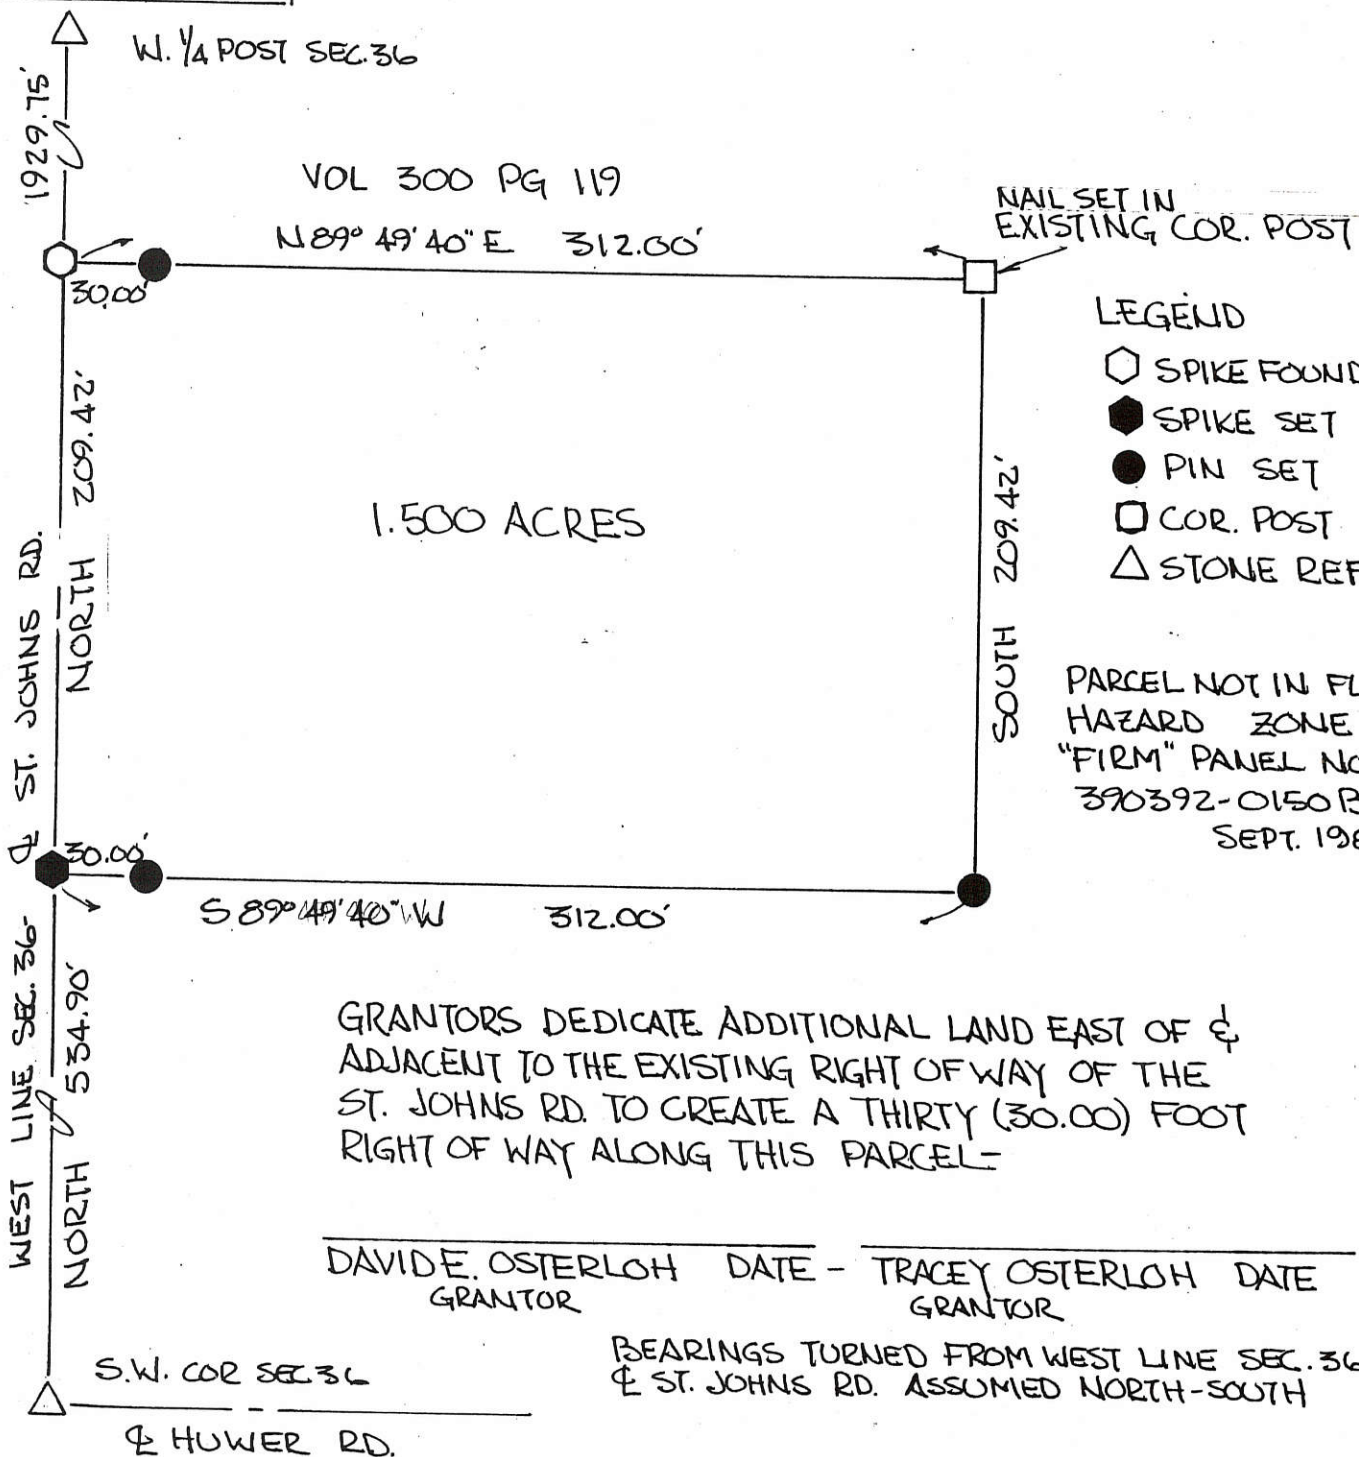 W. 1/4 POST SEC. 36
1929.75'
VOL 300 PG 119
N 89° 49' 40" E 312.00'
NAIL SET IN
EXISTING COR. POST
30.00'
LEGEND
SPIKE FOUND
SPIKE SET
PIN SET
COR. POST
STONE REF
NORTH 209.42'
1.500 ACRES
SOUTH 209.42'
PARCEL NOT IN FL
HAZARD ZONE
"FIRM" PANEL NO
390392-0150B
SEPT. 198
WEST LINE SEC. 36 - ℄ ST. JOHNS RD.
30.00'
S 89° 49' 40" W 312.00'
NORTH 534.90'
GRANTORS DEDICATE ADDITIONAL LAND EAST OF &
ADJACENT TO THE EXISTING RIGHT OF WAY OF THE
ST. JOHNS RD. TO CREATE A THIRTY (30.00) FOOT
RIGHT OF WAY ALONG THIS PARCEL-
DAVID E. OSTERLOH DATE - TRACEY OSTERLOH DATE
GRANTOR GRANTOR
BEARINGS TURNED FROM WEST LINE SEC. 36
℄ ST. JOHNS RD. ASSUMED NORTH-SOUTH
S.W. COR SEC 36
℄ HUWER RD.